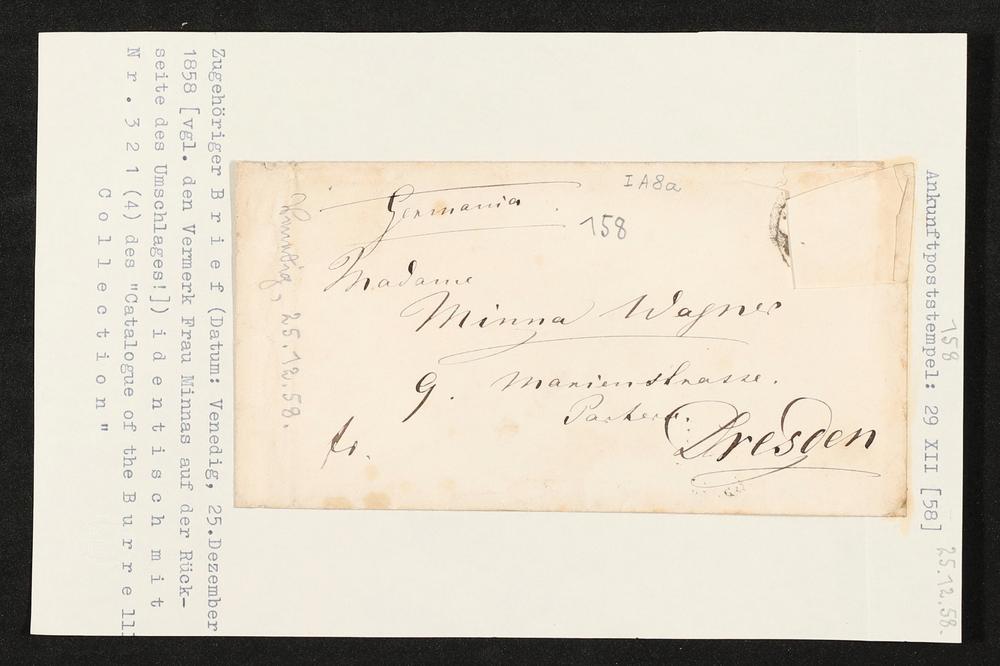 158
Ankunftpoststempel: 29 XII [58]
25.12.58.
IA8a
Germania
158
Madame
Minna Wagner
9. Marienstrasse.
Parterre.
Dresden
fr.
Venedig, 25.12.58.
Zugehöriger B r i e f (Datum: Venedig, 25.Dezember
1858 [vgl. den Vermerk Frau Minnas auf der Rück-
seite des Umschlages!]) i d e n t i s c h m i t
N r . 3 2 1 (4) des "Catalogue of the B u r r e ll
C o l l e c t i o n "